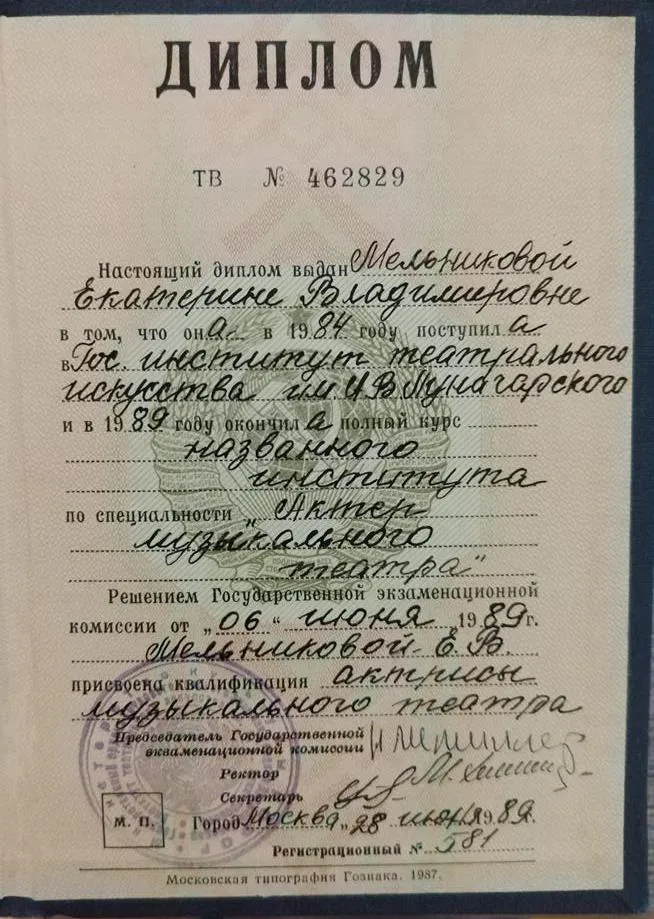 ДИПЛОМ
ТВ № 462829
Настоящий диплом выдан Мельниковой
Екатерине Владимировне
в том, что она в 1984 году поступила
в Гос. институт театрального
искусства им А В Луначарского
и в 1989 году окончила полный курс
названного
института
по специальности „Актер
музыкального
театра“
Решением Государственной экзаменационной
комиссии от „06“ июня 1989г.
Мельниковой Е. В.
присвоена квалификация актрисы
музыкального театра
Председатель Государственной
экзаменационной комиссии
Ректор
Секретарь
М. П.
Город Москва „28 июня 1989.
Регистрационный № 581
Московская типография Гознака. 1987.